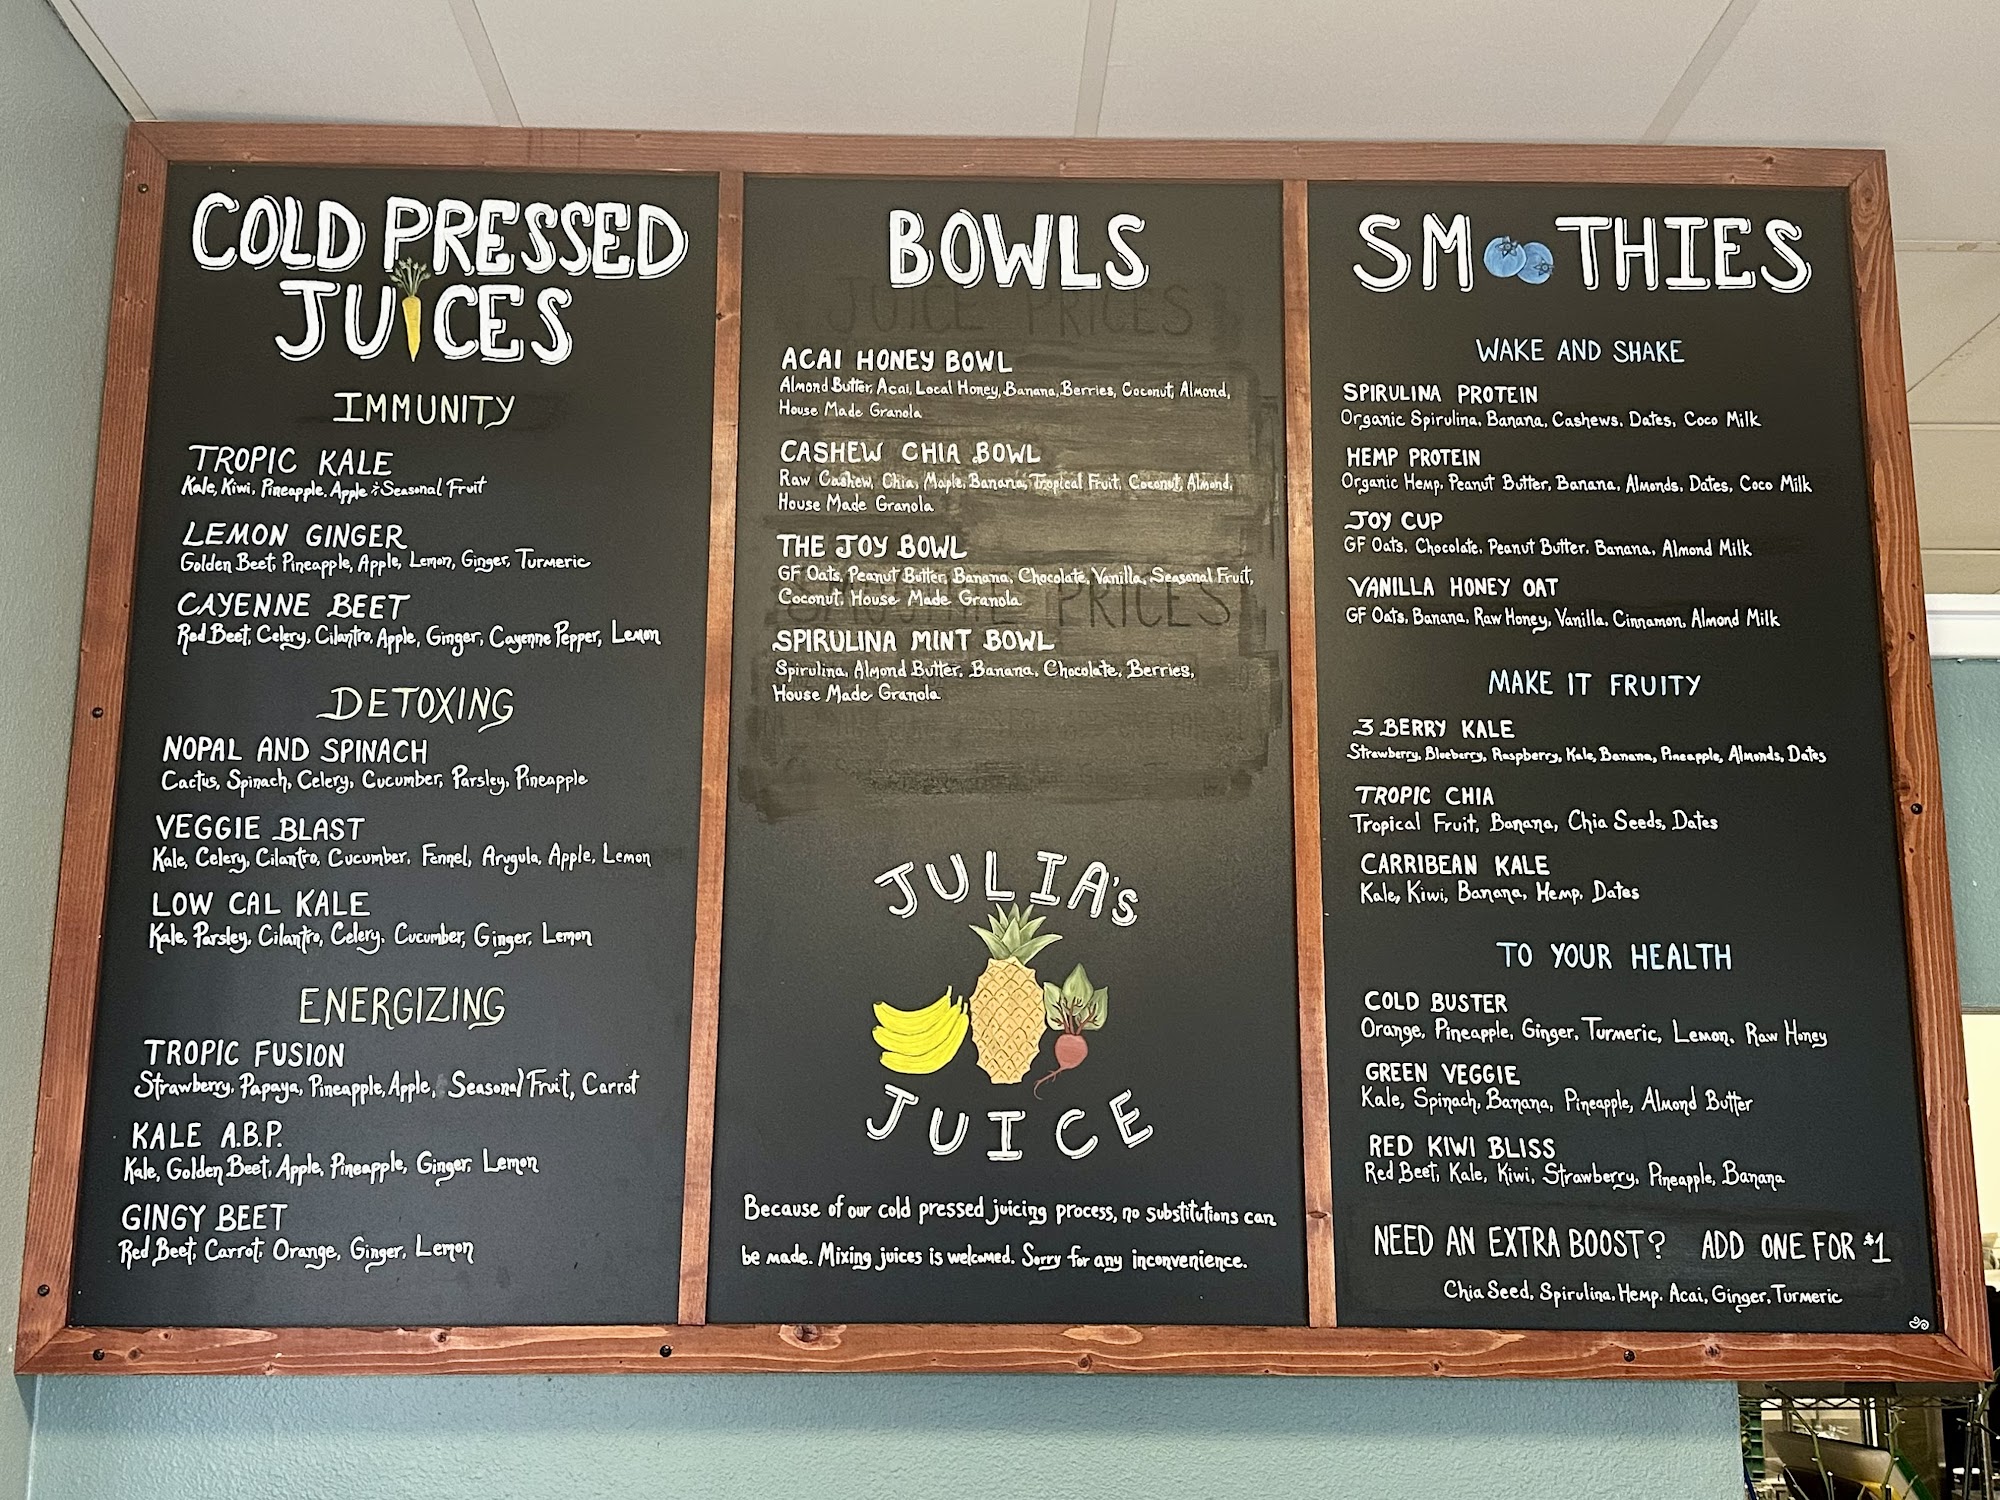 COLD PRESSED
JUICES
IMMUNITY
TROPIC KALE
Kale, Kiwi, Pineapple, Apple & Seasonal Fruit
LEMON GINGER
Golden Beet, Pineapple, Apple, Lemon, Ginger, Turmeric
CAYENNE BEET
Red Beet, Celery, Cilantro, Apple, Ginger, Cayenne Pepper, Lemon
DETOXING
NOPAL AND SPINACH
Cactus, Spinach, Celery, Cucumber, Parsley, Pineapple
VEGGIE BLAST
Kale, Celery, Cilantro, Cucumber, Fennel, Arugula, Apple, Lemon
LOW CAL KALE
Kale, Parsley, Cilantro, Celery, Cucumber, Ginger, Lemon
ENERGIZING
TROPIC FUSION
Strawberry, Papaya, Pineapple, Apple, Seasonal Fruit, Carrot
KALE A.B.P.
Kale, Golden Beet, Apple, Pineapple, Ginger, Lemon
GINGY BEET
Red Beet, Carrot, Orange, Ginger, Lemon
BOWLS
JUICE PRICES
ACAI HONEY BOWL
Almond Butter, Acai, Local Honey, Banana, Berries, Coconut, Almond,
House Made Granola
CASHEW CHIA BOWL
Raw Cashew, Chia, Maple, Banana, Tropical Fruit, Coconut, Almond,
House Made Granola
THE JOY BOWL
GF Oats, Peanut Butter, Banana, Chocolate, Vanilla, Seasonal Fruit,
Coconut, House Made Granola
PRICES
SPIRULINA MINT BOWL
Spirulina, Almond Butter, Banana, Chocolate, Berries,
House Made Granola
JULIA'S
JUICE
Because of our cold pressed juicing process, no substitutions can
be made. Mixing juices is welcomed. Sorry for any inconvenience.
SMOOTHIES
WAKE AND SHAKE
SPIRULINA PROTEIN
Organic Spirulina, Banana, Cashews, Dates, Coco Milk
HEMP PROTEIN
Organic Hemp, Peanut Butter, Banana, Almonds, Dates, Coco Milk
JOY CUP
GF Oats, Chocolate, Peanut Butter, Banana, Almond Milk
VANILLA HONEY OAT
GF Oats, Banana, Raw Honey, Vanilla, Cinnamon, Almond Milk
MAKE IT FRUITY
3 BERRY KALE
Strawberry, Blueberry, Raspberry, Kale, Banana, Pineapple, Almonds, Dates
TROPIC CHIA
Tropical Fruit, Banana, Chia Seeds, Dates
CARRIBEAN KALE
Kale, Kiwi, Banana, Hemp, Dates
TO YOUR HEALTH
COLD BUSTER
Orange, Pineapple, Ginger, Turmeric, Lemon, Raw Honey
GREEN VEGGIE
Kale, Spinach, Banana, Pineapple, Almond Butter
RED KIWI BLISS
Red Beet, Kale, Kiwi, Strawberry, Pineapple, Banana
NEED AN EXTRA BOOST? ADD ONE FOR $1
Chia Seed, Spirulina, Hemp, Acai, Ginger, Turmeric